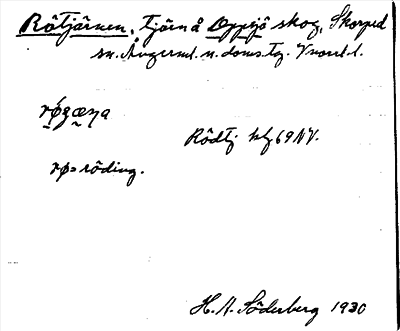 Rötjärnen, tjärn å Oppsjö skog, Skorped
sn. Ångerml. n. doms.tg. Vnorrl. l.
Rödtj hfg 69 NV.
rø = röding.
H. A. Söderberg 1930